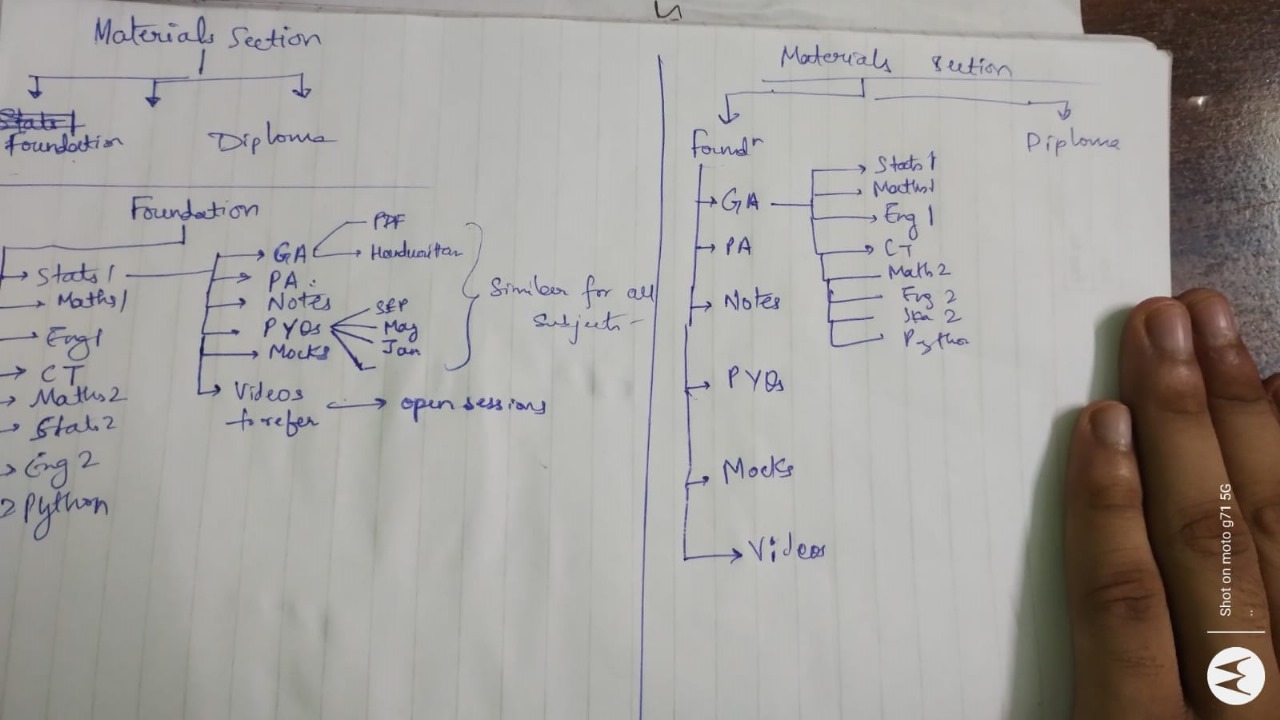 Materials Section
State 1
Foundation
Diploma
Foundation
Stats 1
Maths 1
Eng 1
CT
Maths 2
Stats 2
Eng 2
Python
GA
PDF
Handwritten
PA
Notes
PYQs
SEP
May
Jan
Mocks
Videos
to refer
open sessions
Similar for all
subjects -
Materials Section
Foundn
Diploma
GA
Stats 1
Maths 1
Eng 1
CT
Math 2
Eng 2
Sta 2
Python
PA
Notes
PYQs
Mocks
Videos
Shot on moto g71 5G